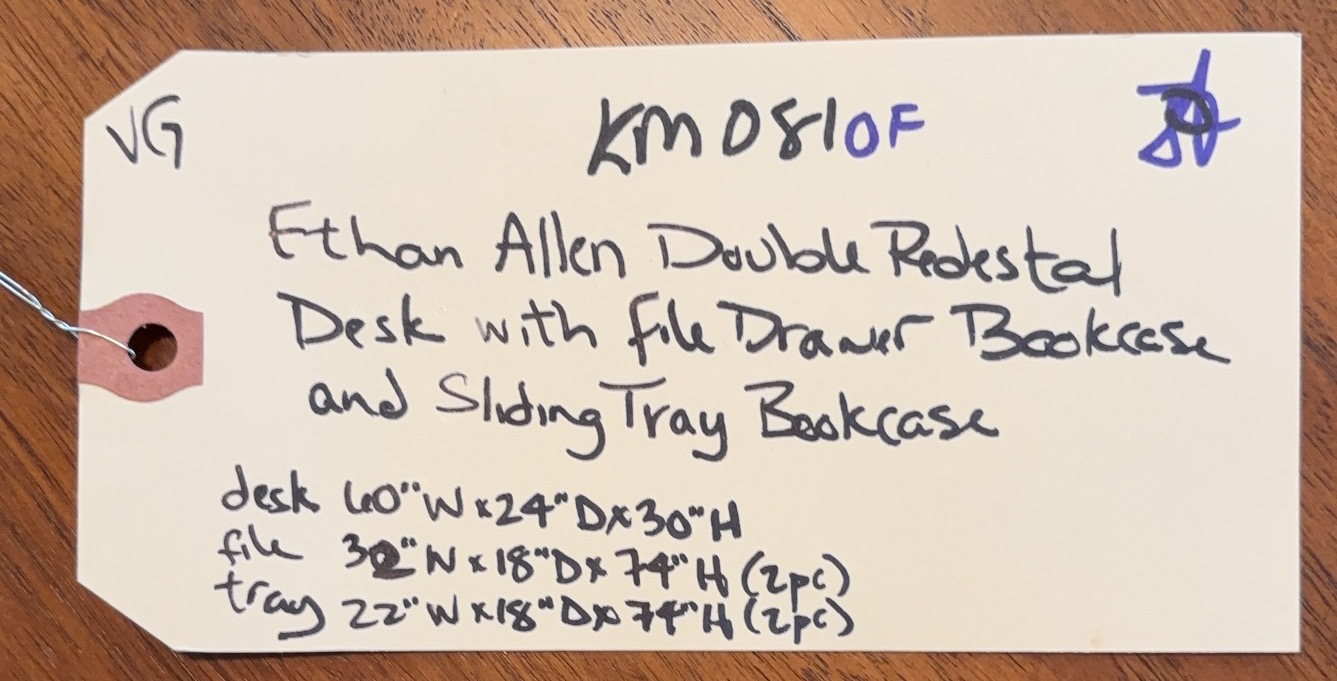 VG
KM081OF
Ethan Allen Double Pedestal
Desk with file Drawer Bookcase
and Sliding Tray Bookcase
desk 60"W x 24"D x 30"H
file 32"W x 18"D x 74"H (2pc)
tray 22"W x 18"D x 74"H (2pc)